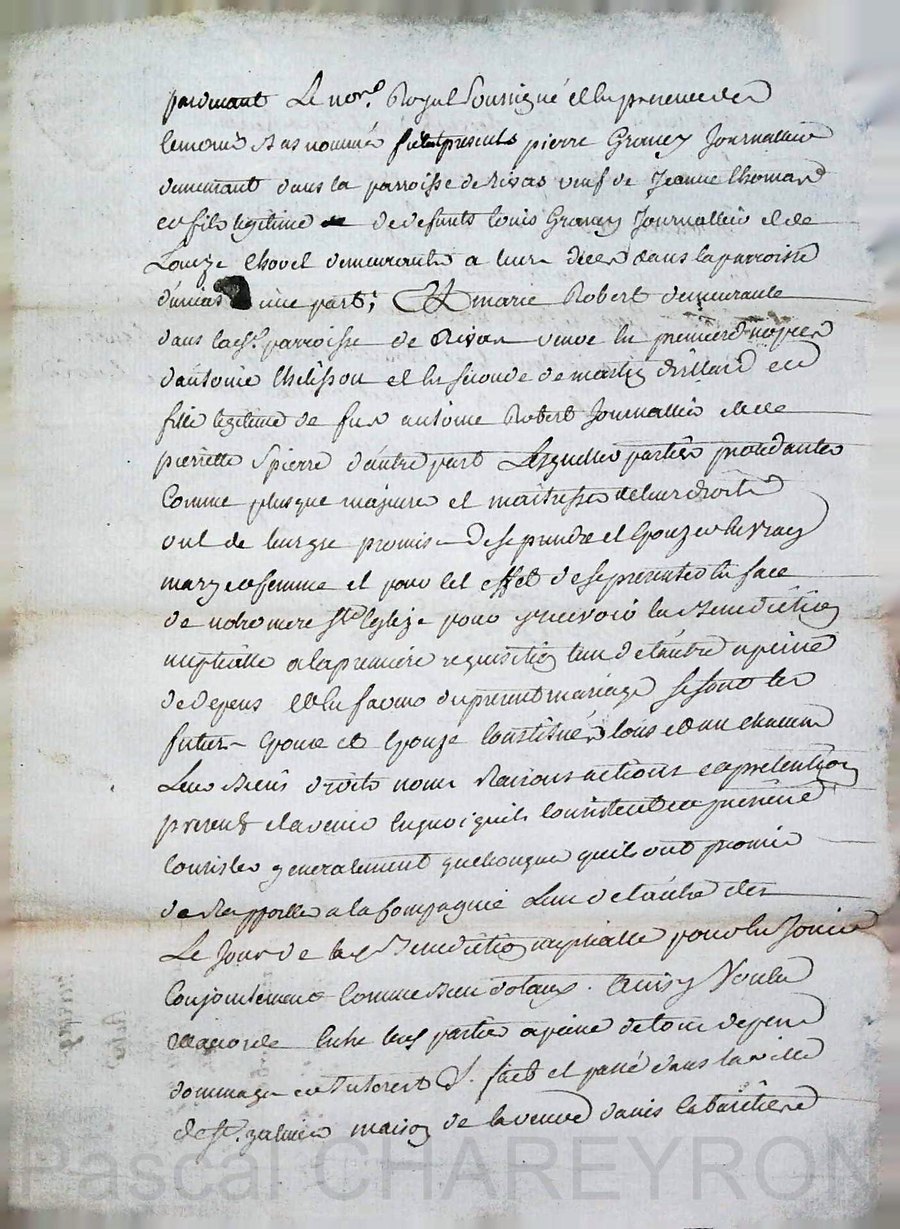 pardevant Le no.re Royal Soussigné et en presence des
temoins bas nommés furent presents pierre Graney Journallier
demeurant dans la parroisse de Rivas veuf de Jeanne thomas
et fils legitime de defunts Louis Graney Journallier et de
Louize Chovel demeurants a leurs deces dans la parroisse
une part; Et marie Robert demeurante
dans lad. parroisse de Rivas veuve en premieres nopces
d'antoine Chelisson et en seconde de martin et
fille legitime de feus antoine Robert Journallier et de
pierrette Spierre d'autre part Lesquelles parties procedantes
Comme plusque majeures et maitresses de leurs droits
ont de leur gré promis de se prendre et Epouzer en vrays
mary et femme et pour cet effet de se presenter en face
de notre mere Ste Eglize pour y recevoir la Benediction
nuptialle a la premiere requisition l'un de l'autre a peine
de depens et en faveur du present mariage se sont les
futurs Epoux et Epouze Constitués tous et un chacuns
Leurs Biens droits noms Raisons actions et pretentions
presents et avenir en quoi quils Consistent et puissent
Consister generalement quelconques quils ont promis
de Rapporter a la Compagnie L'un de l'autre des
Le Jour de lad. Benediction nuptialle pour en Jouir
Conjointement Comme Biens dotaux. Ainsy Voulu
entre les parties a peine de tous depens
dommages et Interests fait et passé dans la ville
de St. galmier maison de la veuve
Pascal CHAREYRON